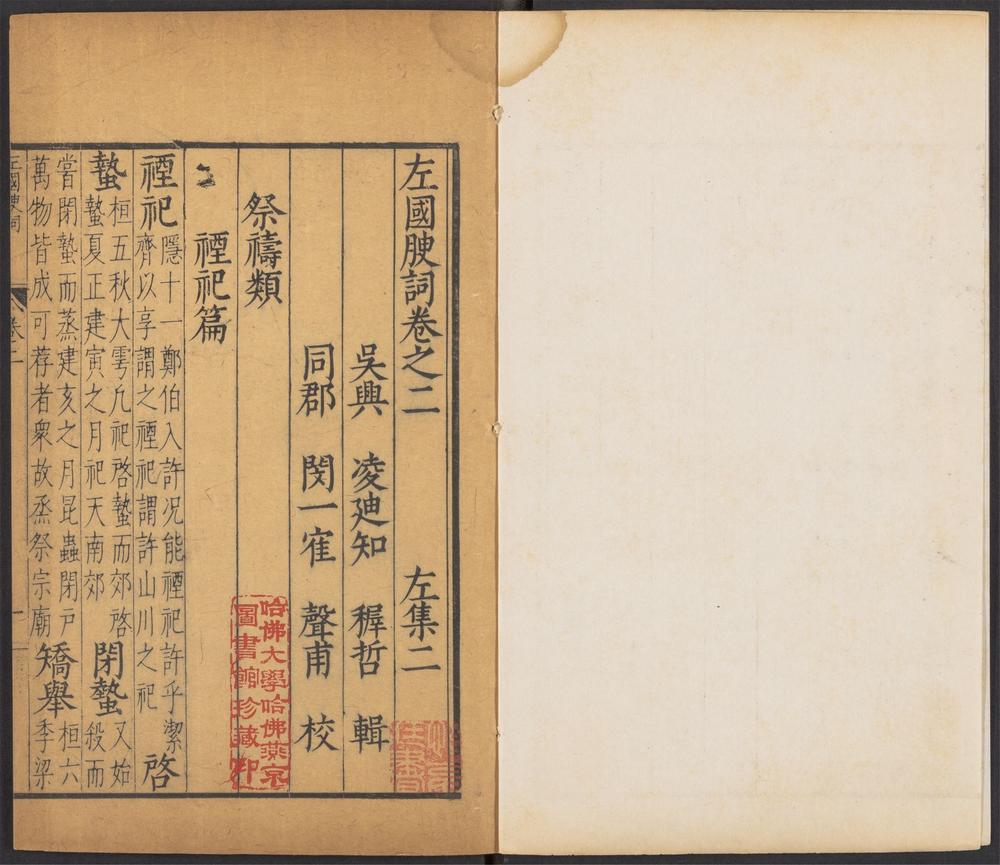 左國腴詞卷之二 左集二
吳興 凌迪知 稺哲 輯
同郡 閔一寉 聲甫 校
祭禱類
禋祀篇
禋祀 隱十一鄭伯入許况能禋祀許乎潔
齊以享謂之禋祀謂許山川之祀 啓
蟄 桓五秋大雩凢祀啓蟄而郊啓
蟄夏正建寅之月祀天南郊 閉蟄 又始殺而
嘗閉蟄而蒸建亥之月昆蟲閉户
萬物皆成可荐者衆故烝祭宗廟 矯舉 桓六季梁
卷二
一
哈佛大學哈佛燕京
圖書館珍藏印